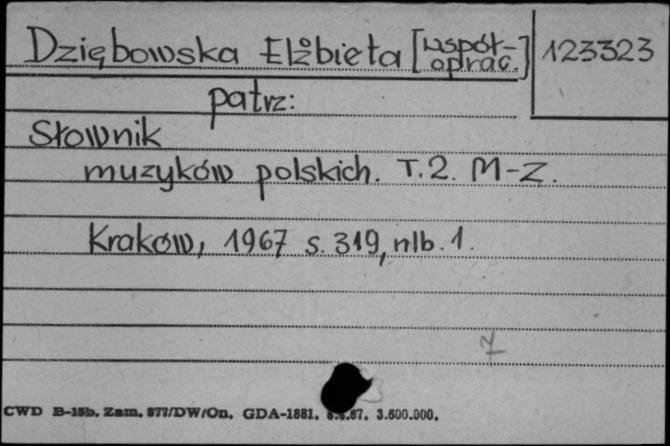 Dziębowska Elżbieta [współ-
oprac.]
123323
patrz:
Słownik
muzyków polskich. T.2. M-Z.
Kraków, 1967 s. 319, nlb. 1.
7
CWD B-15b. Zam. 877/DW/On. GDA-1881. 67. 3.600.000.